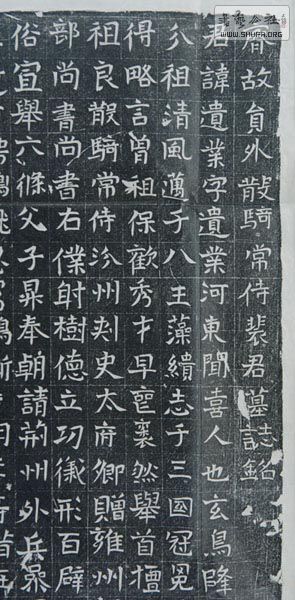 書藝公社
WWW.SHUFA.ORG
故員外散騎常侍裴君墓誌銘
君諱遺業字遺業河東聞喜人也玄鳥降
祖清風邁于八王藻繢志于三國冠冕
得略言曾祖保歡秀才早亡裒然舉首擅
祖良散騎常侍汾州刺史太府卿贈雍州
部尚書尚書右僕射樹德立功儀形百辟
俗宣舉六條父子昇奉朝請荊州外兵參